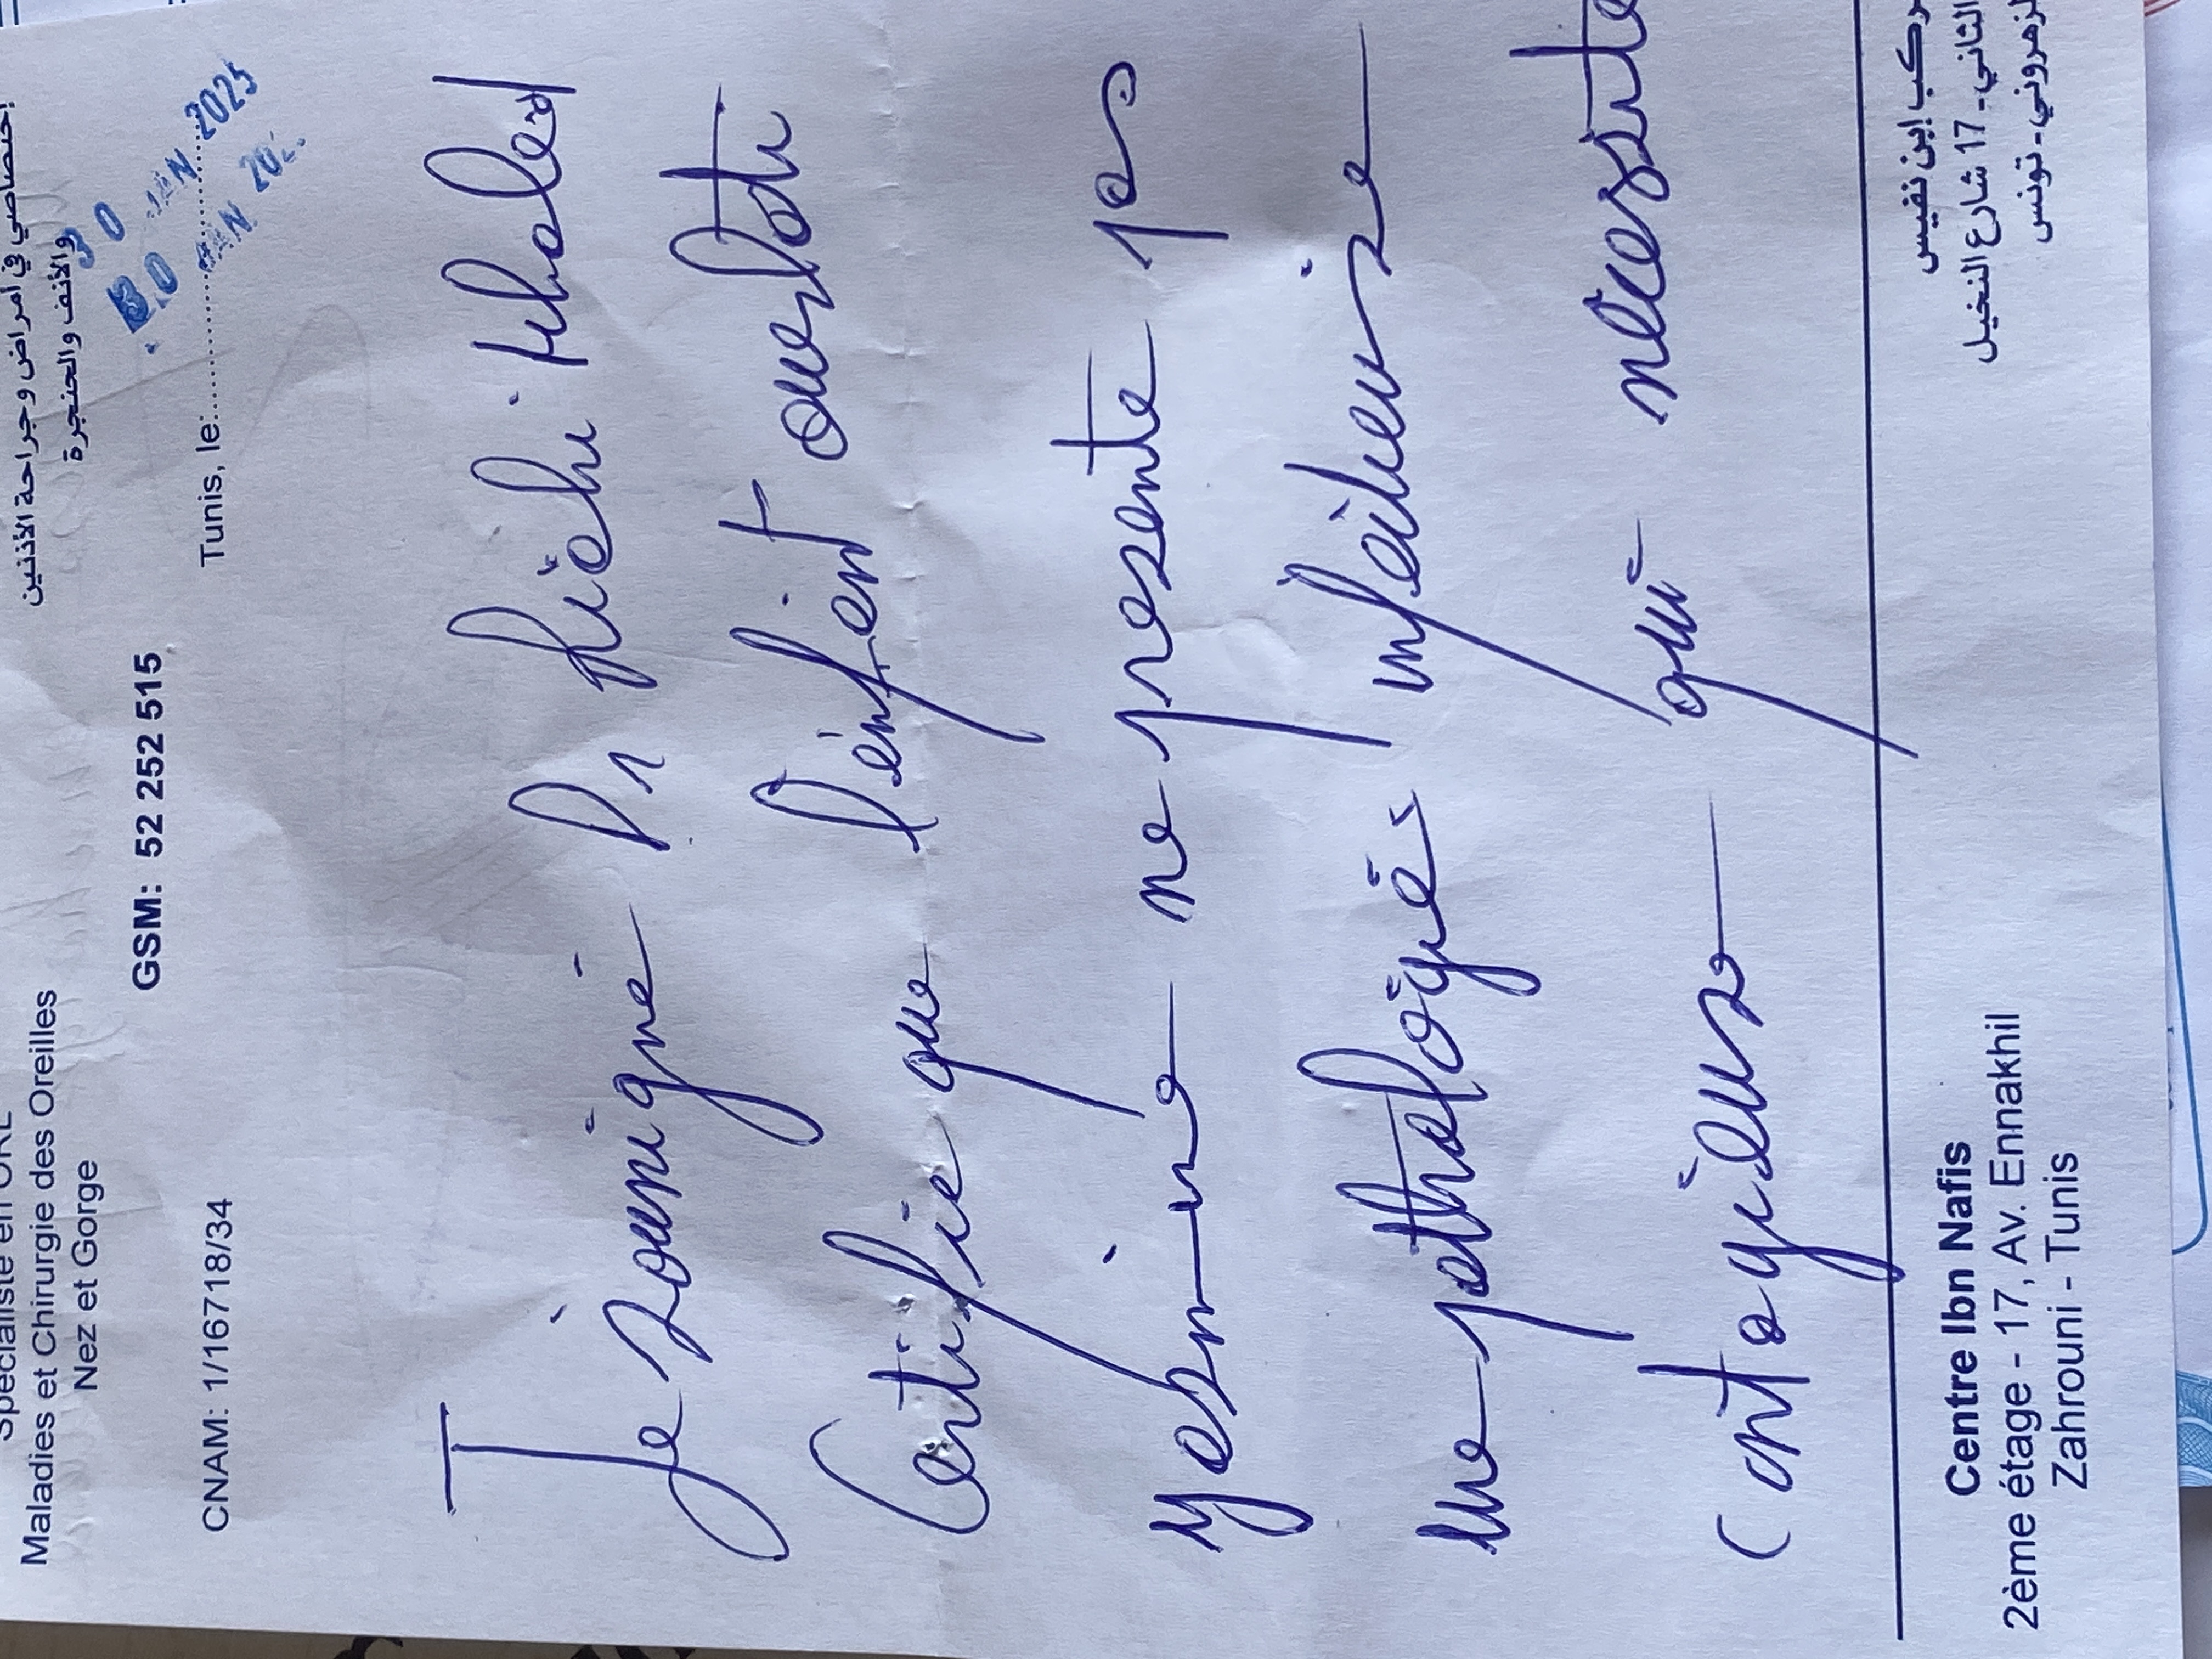 Spécialiste en ORL
Maladies et Chirurgie des Oreilles
Nez et Gorge
إختصاصي في أمراض وجراحة الأذنين
والأنف والحنجرة
GSM: 52 252 515
CNAM: 1/16718/34
Tunis, le:
30 JAN 2025
Je soussigné Dr fidhi Khaled
Certifie que l'enfant oueslati
yasmine ne présente pas
une pathologie infectieuse
contagieuse qui nécessite
Centre Ibn Nafis
2ème étage - 17, Av. Ennakhil
Zahrouni - Tunis
مركب إبن نفيس
الثاني - 17 شارع النخيل
الزهروني - تونس